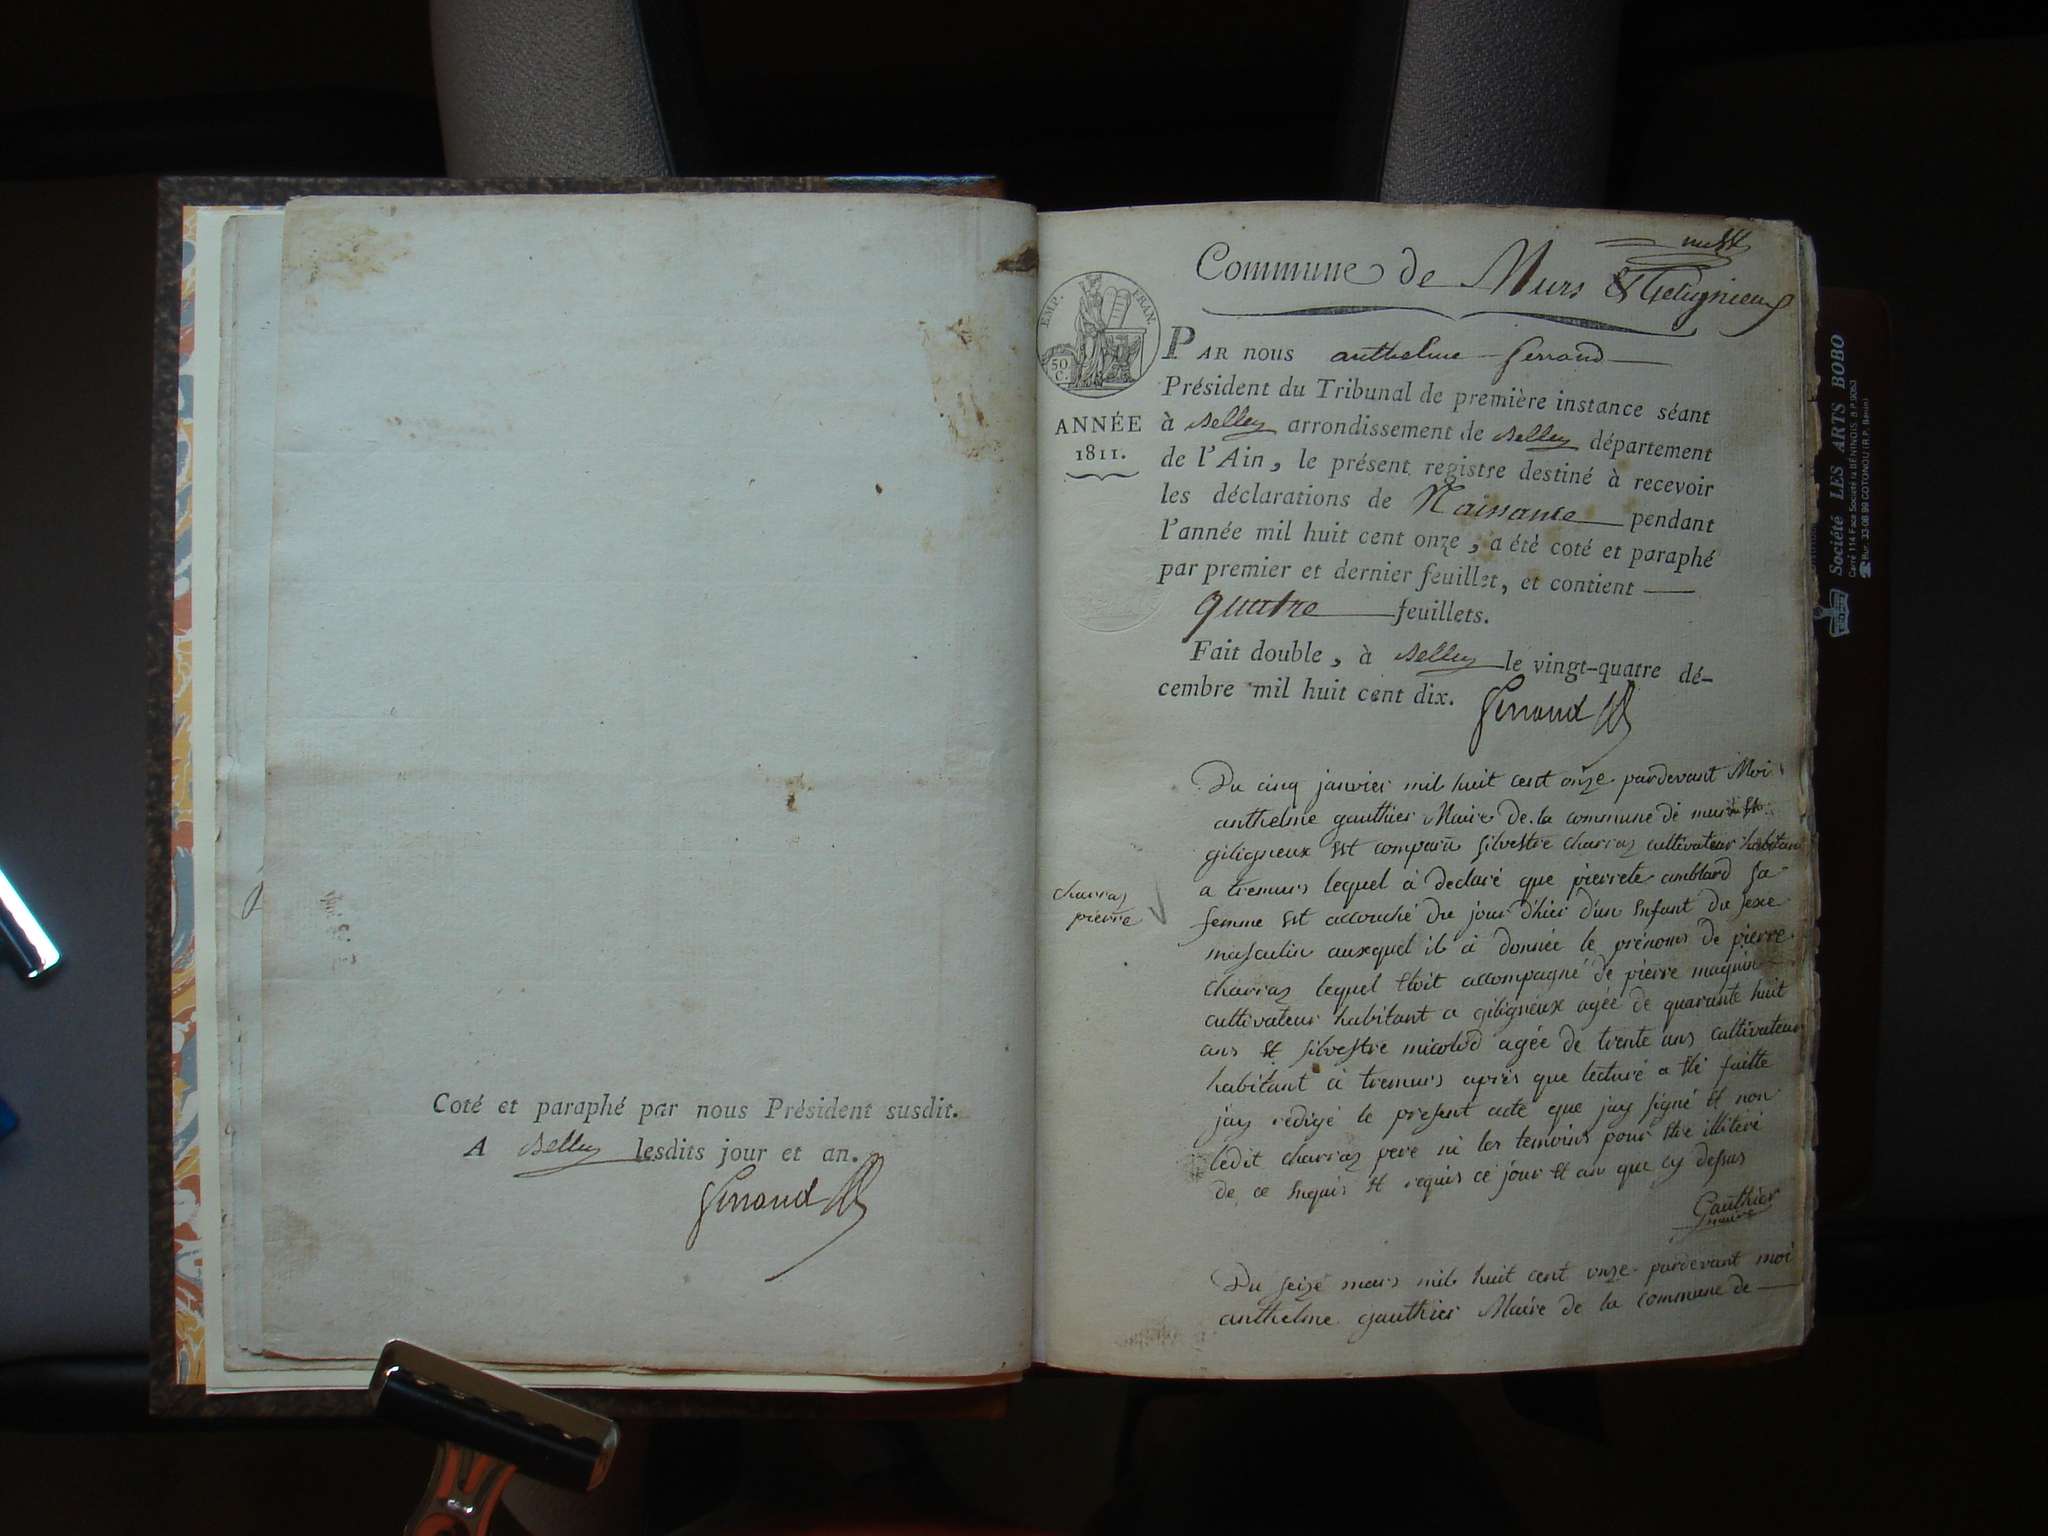 Coté et paraphé par nous Président susdit.
A Belley lesdits jour et an.
Gerraud
Commune de Murs & Geligneux
EMP. FRAN.
50 C.
ANNÉE
1811.
PAR nous anthelme Gerraud
Président du Tribunal de première instance séant
à Belley arrondissement de Belley département
de l'Ain, le présent registre destiné à recevoir
les déclarations de Naissance pendant
l'année mil huit cent onze, a été coté et paraphé
par premier et dernier feuillet, et contient
quatre feuillets.
Fait double, à Belley le vingt-quatre dé-
cembre mil huit cent dix.
Gerraud
Du cinq janvier mil huit cent onze pardevant Moi
anthelme gauthier Maire de la commune de murs et
giligneux Est comparu silvestre charraz cultivateur habitant
a tremurs lequel à declaré que pierrete amblard sa
femme Est accouché du jour d'hier d'un Enfant du sexe
masculin auxquel il à donnée le prénoms de pierre
charraz lequel Etoit accompagné de pierre magnin
cultivateur habitant a giligneux agée de quarante huit
ans Et silvestre micolod agée de trente ans cultivateur
habitant à tremurs après que lecture a Eté faitte
jay redigé le present acte que jay signé Et non
ledit charraz pere ni les temoins pour Etre illiteré
de ce Enquis Et requis ce jour Et an que cy dessus
Gauthier
maire
charraz
pierre
Du seize mars mil huit cent onze pardevant moi
anthelme gauthier Maire de la commune de
Société LES ARTS BOBO
Carré 114 Face Société la BÉNINOIS. B.P. 9053
Bur. 33 08 99 COTONOU (R.P. Bénin)